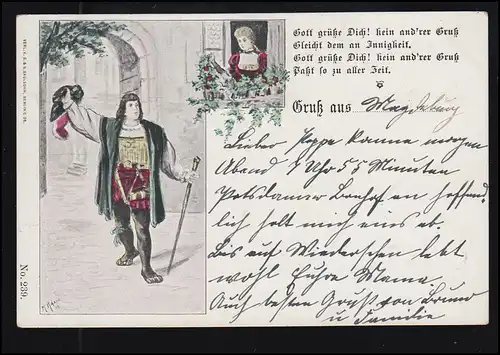 Gott grüße Dich! kein and'rer Gruß
Gleicht dem an Innigkeit.
Gott grüße Dich! kein and'rer Gruß
Paßt so zu aller Zeit.
Gruß aus Magdeburg
Lieber komme morgen
Abend 7 Uhr 55 Minuten
Potsdamer Banhof an hoffend
lich holt mich eins ab.
Bis auf Wiedersehen lebt
wohl Euhre Mama.
Auch besten Gruß von Bruno
u Familie
No. 239.